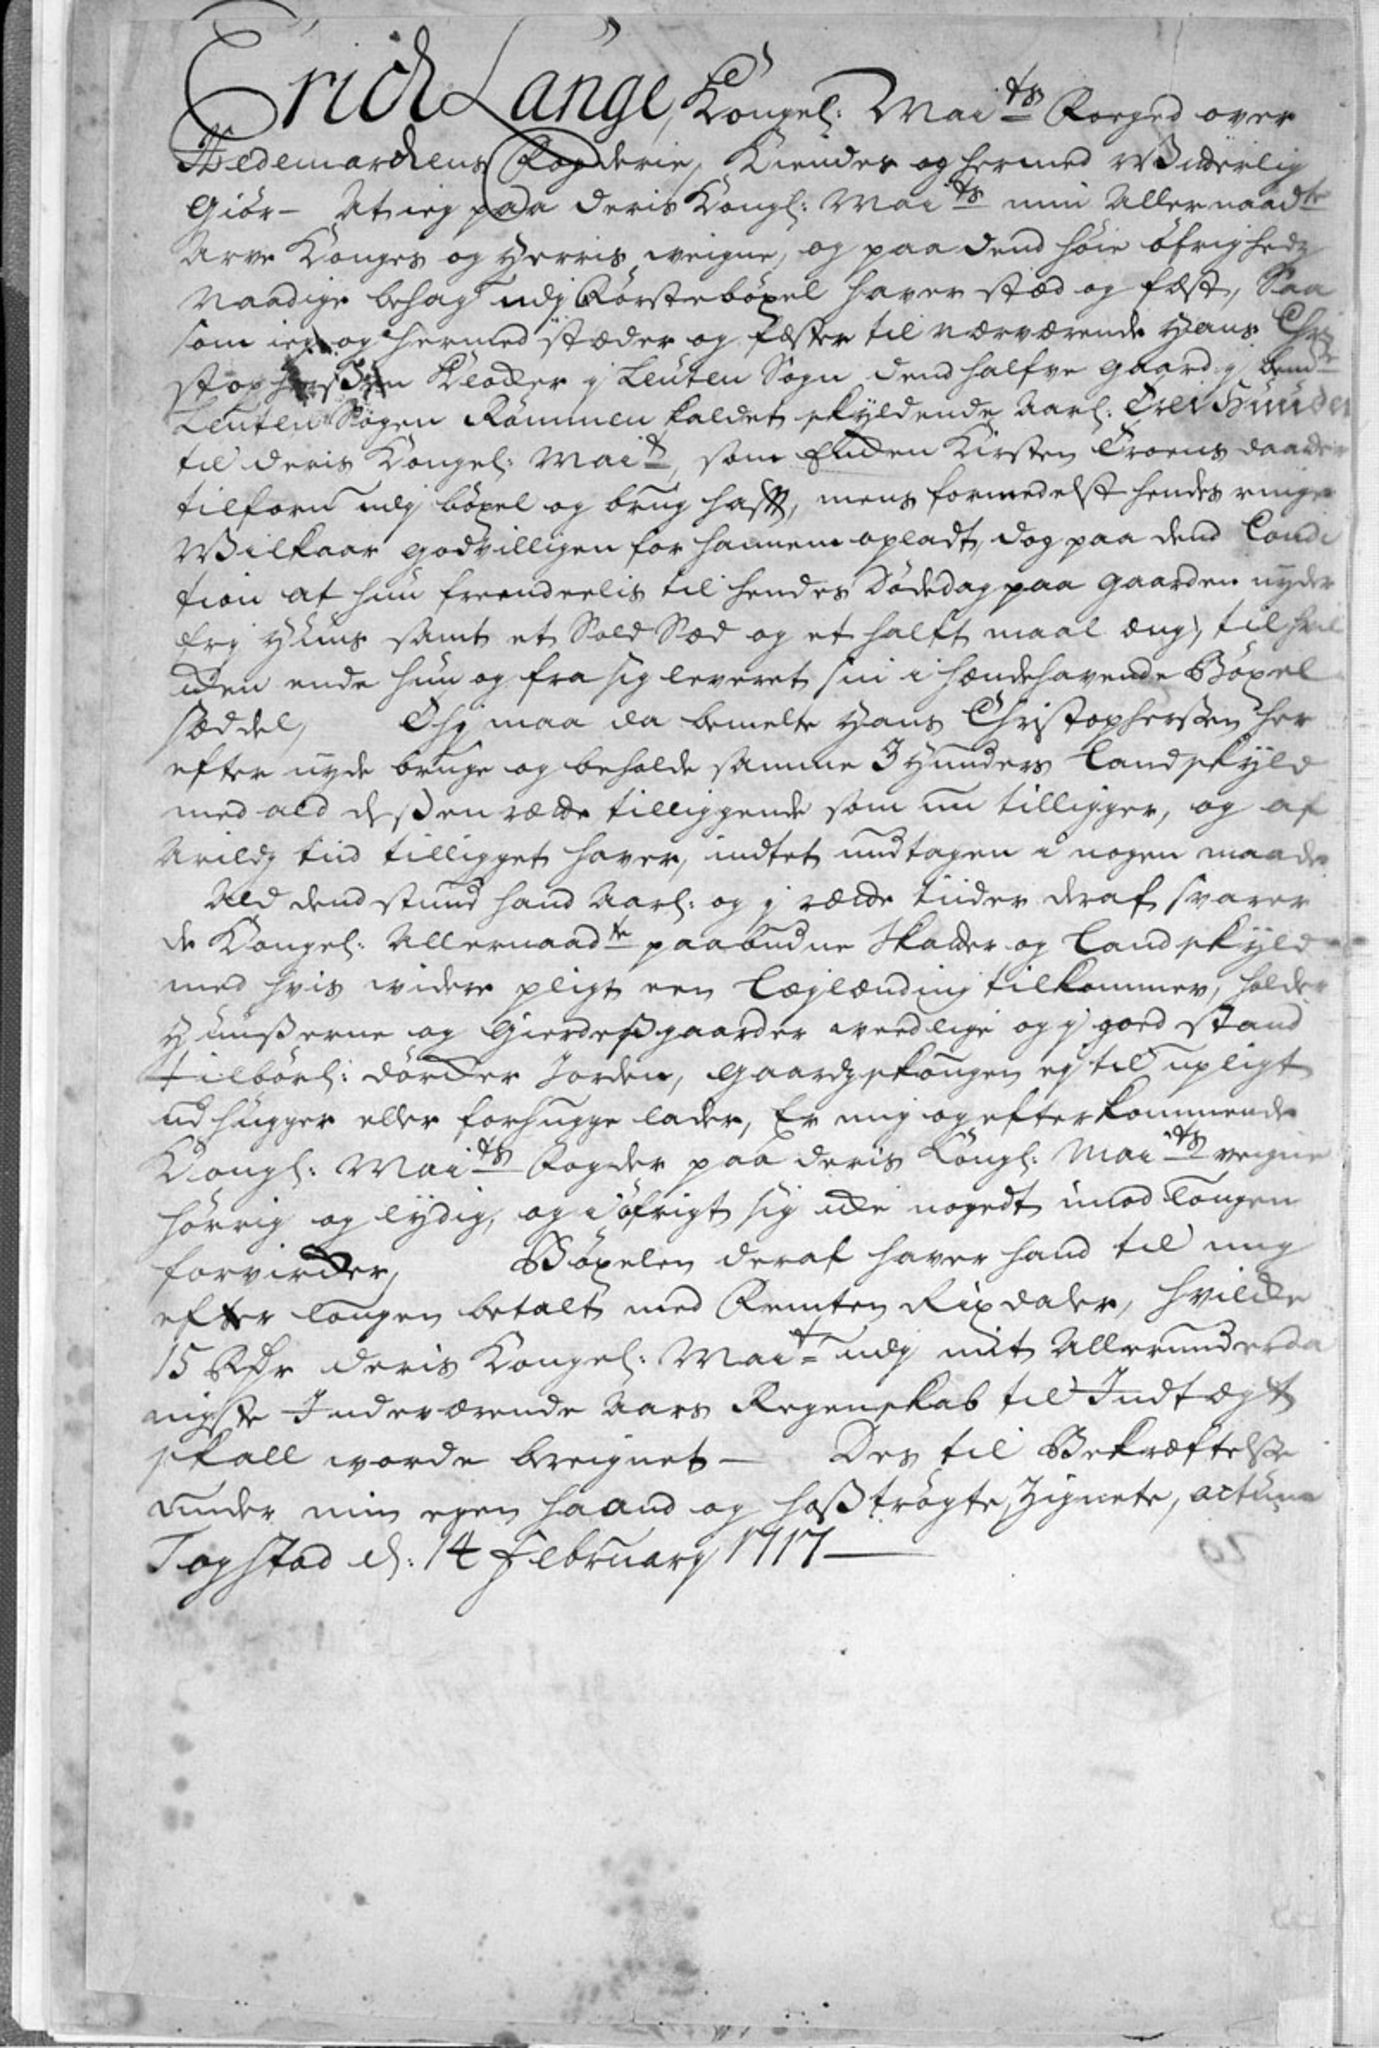 Erich Lange, Kongel: Mai:ts Foeged over
Hedemarckens Fogderie, Kiendes og hermed Witterlig
Giör - At ieg paa Deris Kongl: Mai:ts min Allernaadte
Arve Konges og Herris weigne, og paa dend höie öfrigheds
Naadige behag udj Förstebøxel haver stæd og fæst, Saa
som ieg og hermed stæder og fæster til nærværende Hans Chri
stophersen Klocker j Leuten Sogn dend halfve gaard j bemte
Leuten Sogen Rømmen kaldet skyldende Aarl: Trei Hunder
til deris Kongel: Mait, som Encken Kirsten Troensdaatter
tilforn udj böxel og brug hafft, mens formedelst hendes ringe
Wilkaar godvilligen for hannem opladt, dog paa dend Condi
tion at hun fremdeelis til hendes Dödedag paa gaarden nyder
frj Huus samt et Sold Sæd og et halft maal eng, til hvil
cken ende hun og fra sig leveret sin i hændehavende Böxel
sæddel, Thj maa da bemelte Hans Christophersen her
efter nyde bruge og beholde samme 3 Hunders Landskyld
med ald dessen rætte tilliggende som nu tilligger, og af
Arilds tiid tilligget haver, indtet undtagen i nogen maade
Ald dend stund hand Aarl: og j rætte tider deraf svarer
de Kongel: Allernaadte paabudne Skatter og Landskyld
med hvis widere pligt een Leylænding tilkommer, holder
Huuserne og Gierdesgaarder weedlige og j goed stand
tilbörl: dörcker Jorden, gaards skougen ej til upligt
udhugger eller forhugge lader, Er mig og efterkommende
Kongl: Mai:ts Fogder paa deris Kongl: Mai:ts weigne
hörrig og lydig, og i öfrigt sig icke nogedt imod Lougen
forvircker, Böxelen deraf haver hand til mig
efter Lougen betalt med Femten Rixdaler, hvilcke
15 Rdr deris Kongel: Mait: udj mit Allerunderda
nigste Indeværende Aars Regenskab til Indtægt
skall worde bereignet - Des til Bekræftelse
under min egen haand og hoßtrögte Zignete, actum
Togstad d: 14 February 1717